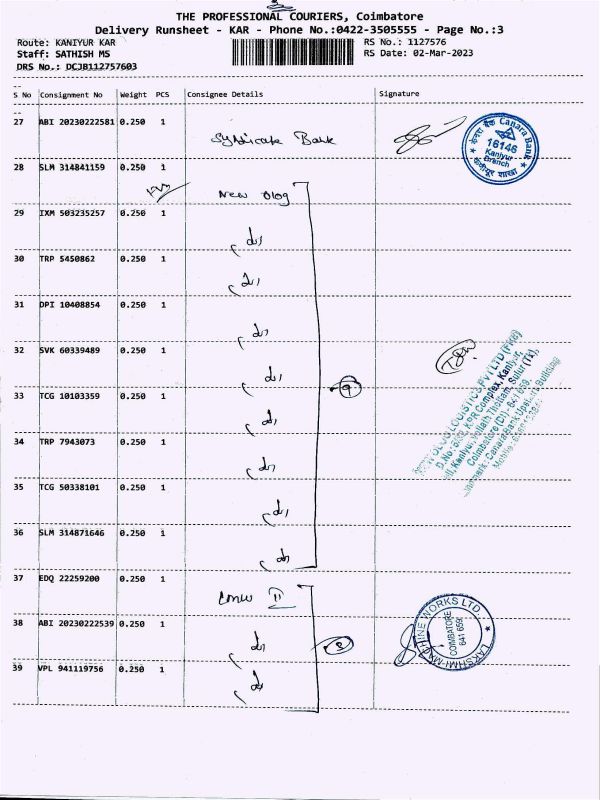 3
THE PROFESSIONAL COURIERS, Coimbatore
Delivery Runsheet - KAR - Phone No.:0422-3505555 - Page No.:3
Route: KANIYUR KAR
RS No.: 1127576
Staff: SATHISH MS
RS Date: 02-Mar-2023
DRS No.: DCJB112757603
S No Consignment No Weight PCS Consignee Details Signature
27 ABI 20230222581 0.250 1 Syndicate Bank
केनरा बैंक Canara Bank
16146
Kaniyur
Branch
28 SLM 314841159 0.250 1 New Olog
29 IXM 503235257 0.250 1
30 TRP 5450862 0.250 1
31 DPI 10408854 0.250 1
32 SVK 60339489 0.250 1
33 TCG 10103359 0.250 1
9
34 TRP 7943073 0.250 1
35 TCG 50338101 0.250 1
36 SLM 314871646 0.250 1
LOGISTICS PVT LTD
KPR Complex, Kaniyur,
Kaniyur, Thottam, Sulur (Tk),
Coimbatore (Dt) - 641 659.
Canara Bank Building
37 EDQ 22259200 0.250 1 LMW II
38 ABI 20230222539 0.250 1
39 VPL 941119756 0.250 1
LAKSHMI MACHINE WORKS LTD
COIMBATORE
641 659